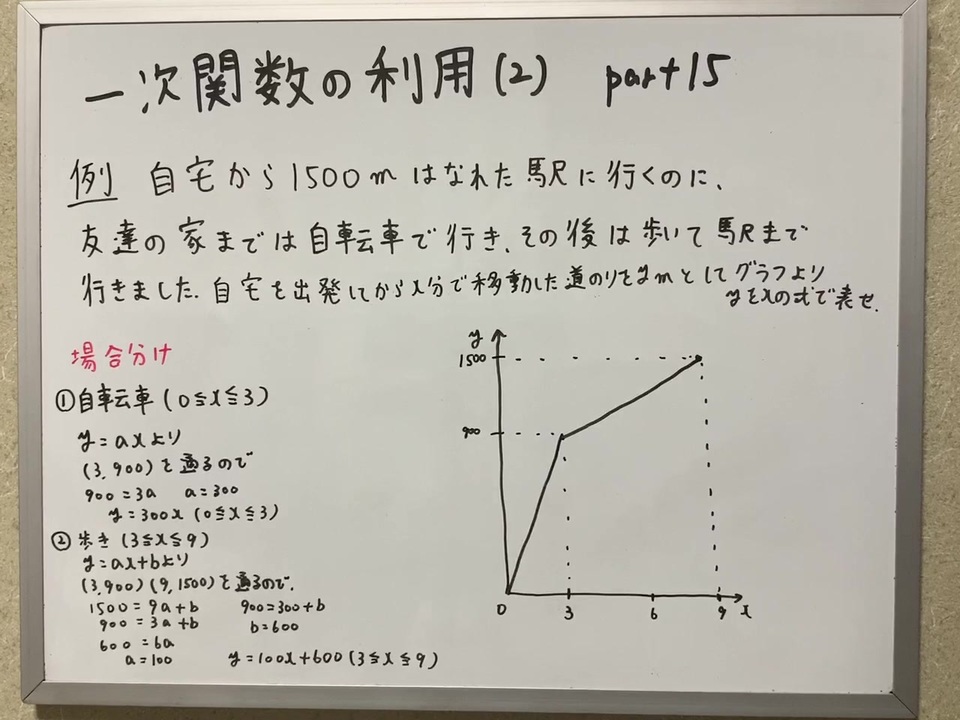 一次関数の利用(2) part15
例 自宅から1500mはなれた馬尺に行くのに、
友達の家までは自転車で行き、その後は歩いて馬尺まで
行きました。自宅を出発してからx分で移動した道のりをymとしてグラフより
yをxの式で表せ。
場合分け
①自転車(0≦x≦3)
y=axより
(3,900)を通るので
900=3a a=300
y=300x(0≦x≦3)
②歩き(3≦x≦9)
y=ax+bより
(3,900)(9,1500)を通るので.
1500=9a+b 900=300+b
900=3a+b b=600
600=6a
a=100 y=100x+600(3≦x≦9)
y
1500
900
0 3 6 9 x